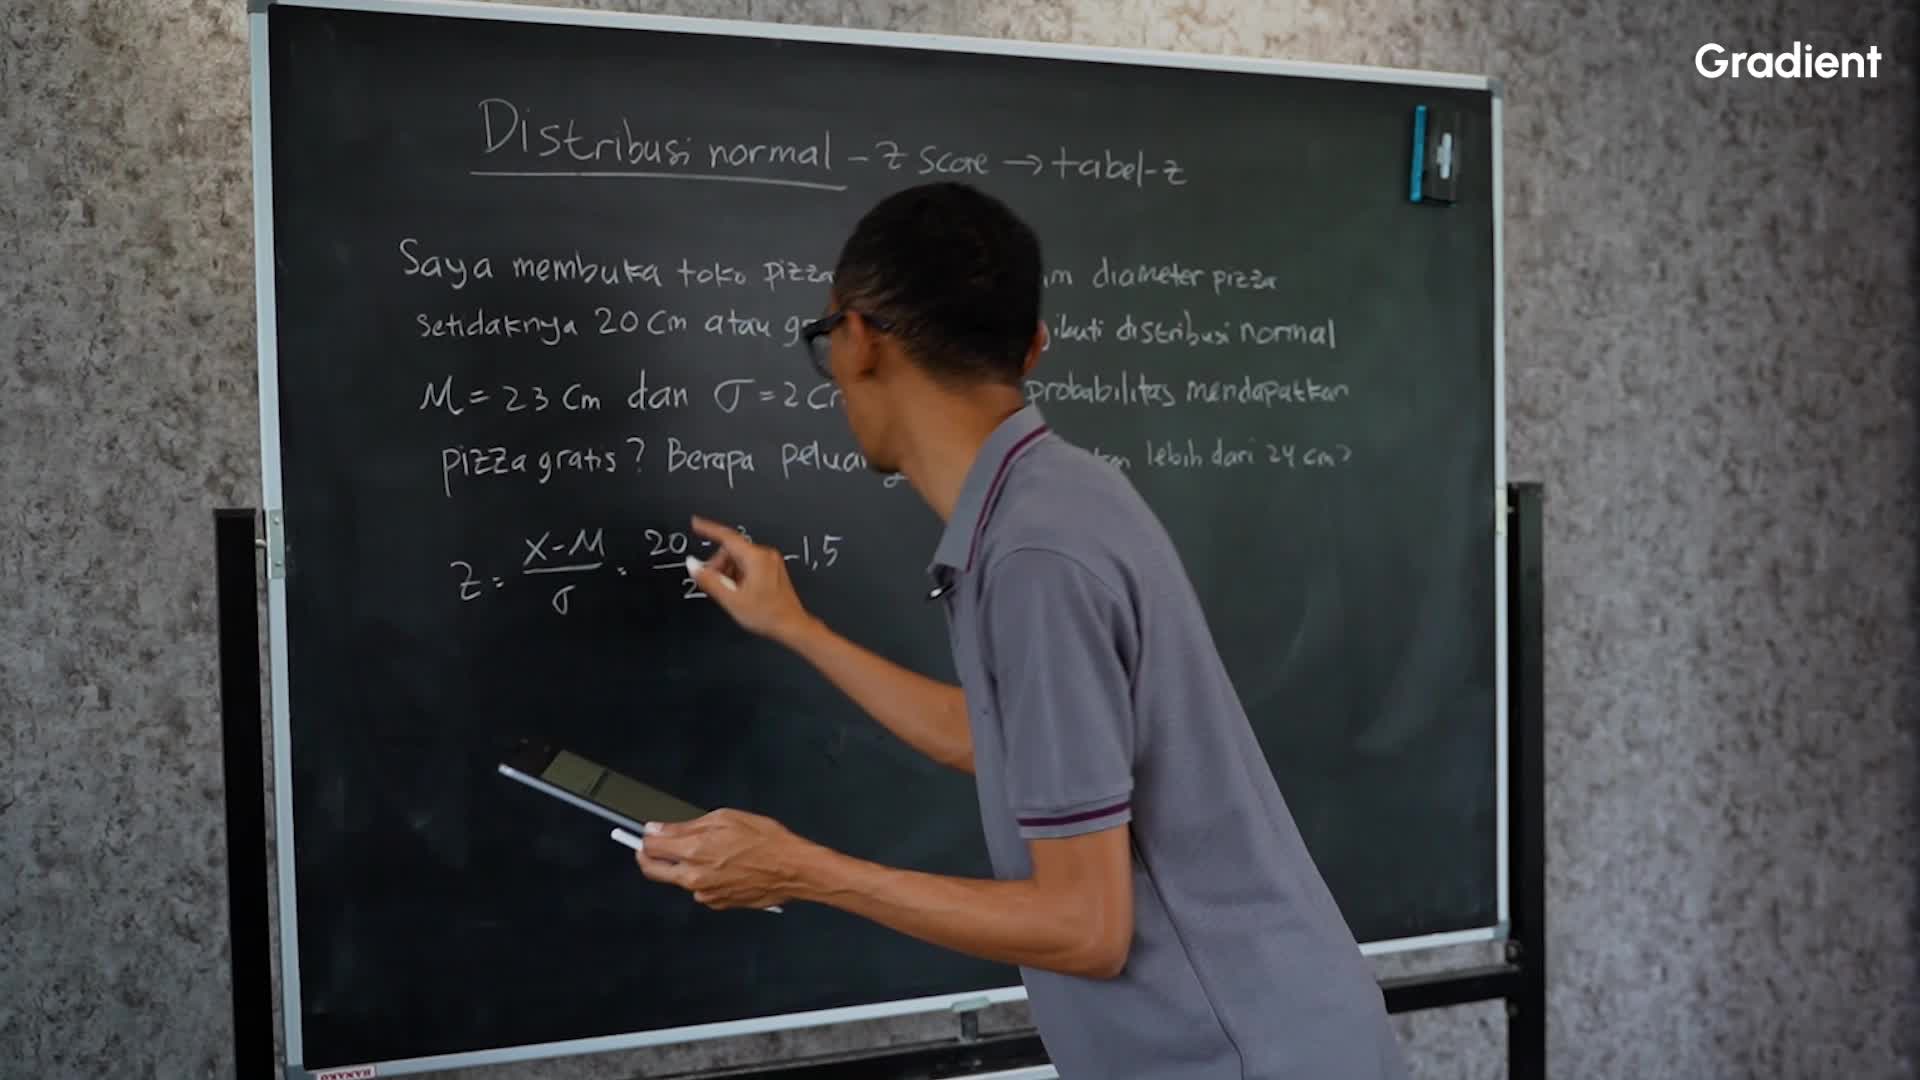 Gradient
Distribusi normal - z score → tabel-z
Saya membuka toko pizza diameter pizza
setidaknya 20 cm atau distribusi normal
M = 23 cm dan σ = 2 probabilitas mendapatkan
pizza gratis? Berapa lebih dari 24 cm?
Z = X-M / σ = 20 - / 2 -1,5
HANAKO